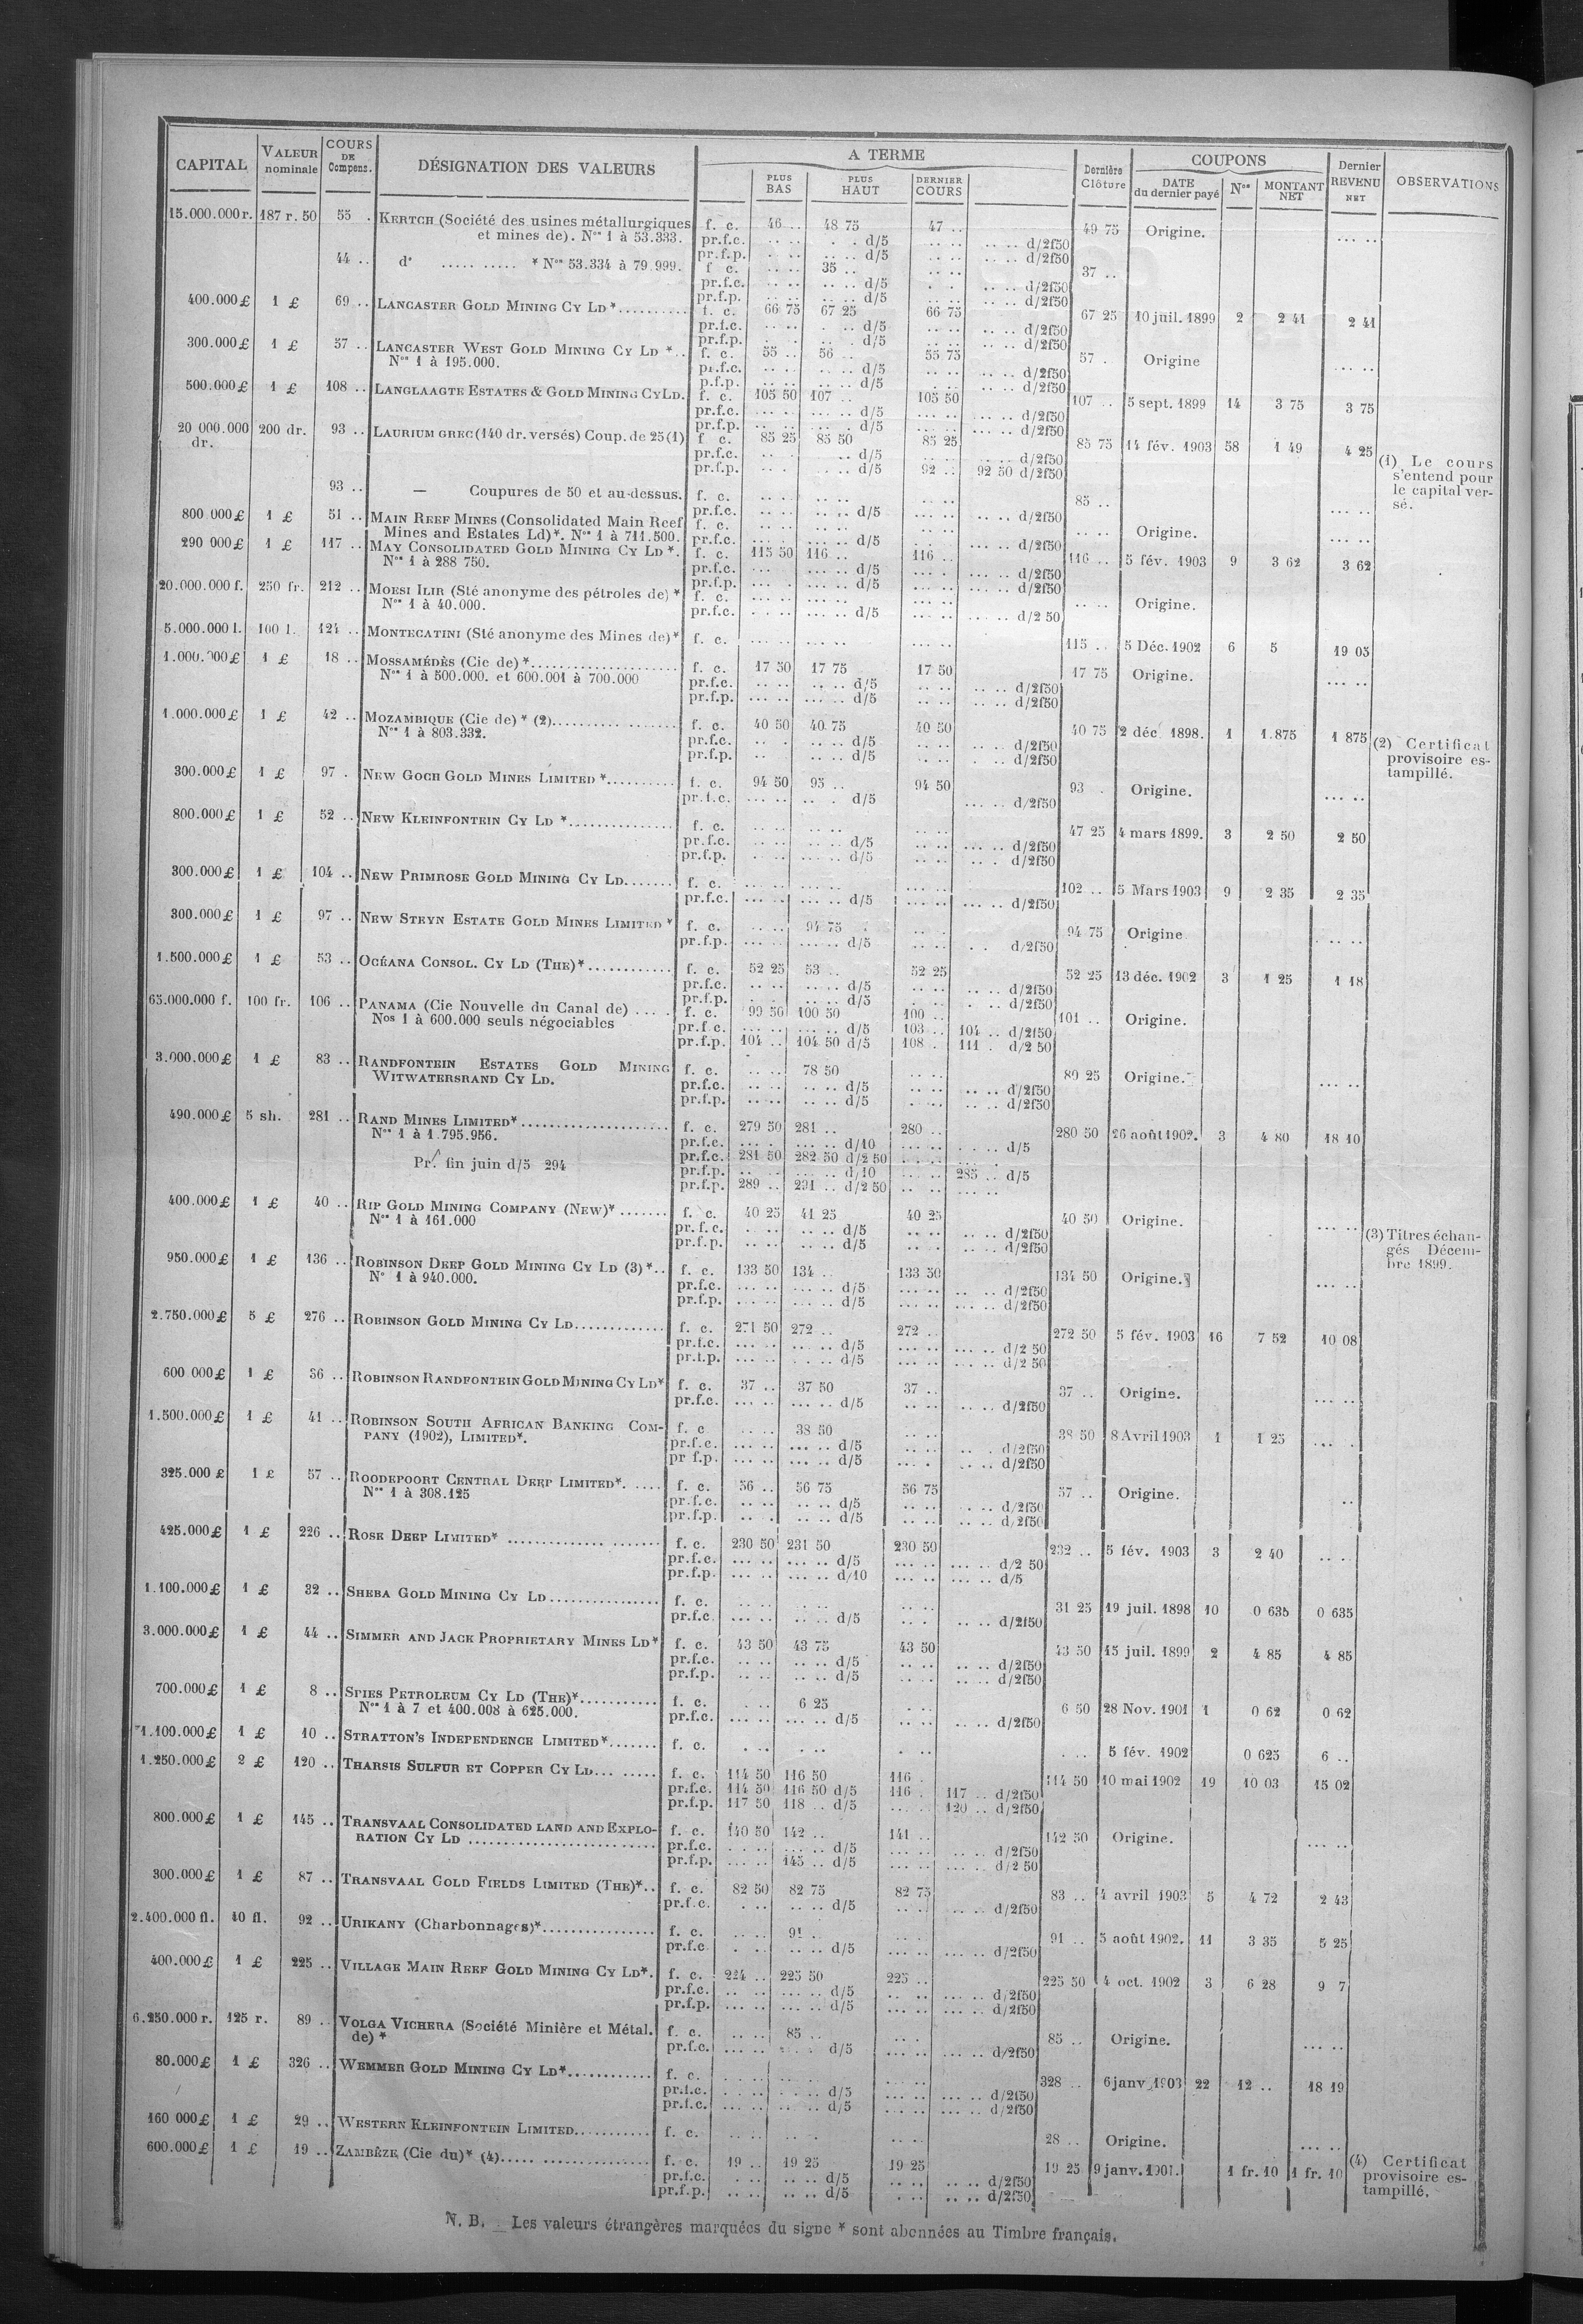 CAPITAL | VALEUR nominale | COURS DE Compens. | DÉSIGNATION DES VALEURS | A TERME | PLUS BAS | PLUS HAUT | DERNIER COURS | Dernière Clôture | COUPONS | DATE du dernier payé | Nos | MONTANT NET | Dernier REVENU NET | OBSERVATIONS
15.000.000 r. 187 r. 50 55 . KERTCH (Société des usines métallurgiques f. c. 46 .. 48 75 47 .. 49 75 Origine. ... ..
et mines de). Nos 1 à 53.333. pr.f.c. .. .. . . d/5 .. .. .. .. d/2f50
pr.f.p. .. .. d/5 .. .. .. .. d/2f50
44 .. do ..... ..... * Nos 53.334 à 79.999. f c. .. .. 35 .. .. .. 37 ..
pr.f.c. .. .. .. .. d/5 .. .. d/2f50
pr.f.p. .. .. .. .. d/5 .. .. .. .. d/2f50
400.000 £ 1 £ 69 .. LANCASTER GOLD MINING CY LD *.......... f. c. 66 75 67 25 66 75 67 25 10 juil. 1899 2 2 41 2 41
pr.f.c. .. .. . .. d/5 .. .. .. .. d/2f50
pr.f.p. .. .. . . d/5 .. .. .. .. d/2f50
300.000 £ 1 £ 57 .. LANCASTER WEST GOLD MINING CY LD *.. f. c. 55 .. 56 .. 55 75 57 . Origine ... ..
Nos 1 à 195.000. pr.f.c. .. .. .. .. d/5 .. .. .. .. d/2f50
p.f.p. .. .. .. .. d/5 . .. .. .. d/2f50
500.000 £ 1 £ 108 .. LANGLAAGTE ESTATES & GOLD MINING CY LD. f. c. 105 50 107 .. 105 50 107 .. 5 sept. 1899 14 3 75 3 75
pr.f.c. ... .. ... .. d/5 ... .. ... .. d/2f50
pr.f.p. .. .. . .. d/5 ... .. ... .. d/2f50
20 000.000 dr. 200 dr. 93 .. LAURIUM GREC (140 dr. versés) Coup. de 25 (1) f c. 85 25 85 50 85 25 85 75 14 fév. 1903 58 1 49 4 25
pr.f.c. .. . .. d/5 .. .. .. .. d/2f50
pr.f.p. .. . . .. d/5 92 .. 92 50 d/2f50
(1) Le cours
s'entend pour
le capital ver-
sé.
93 .. — Coupures de 50 et au-dessus. f. c. .. .. .. .. .. .. 85 .. ... ..
pr.f.c. .. .. .. .. d/5 .. .. .. .. d/2f50
800 000 £ 1 £ 51 .. MAIN REEF MINES (Consolidated Main Reef f. c. .. .. .. .. .. .. .. .. Origine. ... ..
Mines and Estates Ld)*. Nos 1 à 711.500. pr.f.c. ... .. .. .. d/5 .. . ... .. d/2f50
290 000 £ 1 £ 117 .. MAY CONSOLIDATED GOLD MINING CY LD *. f. c. 115 50 116 .. 116 .. 116 .. 5 fév. 1903 9 3 62 3 62
Nos 1 à 288 750. pr.f.c. ... ... .. d/5 ... . ... .. d/2f50
pr.f.p. ... . ... .. d/5 ... .. ... .. d/2f50
20.000.000 f. 250 fr. 212 .. MOESI ILIR (Sté anonyme des pétroles de) * f. c. ... .. ... .. ... .. .. .. Origine.
Nos 1 à 40.000. pr.f.c. . . .. ... .. d/5 ... .. d/2 50
5.000.000 l. 100 l. 124 .. MONTECATINI (Sté anonyme des Mines de) * f. c. ... .. ... .. ... .. 115 .. 5 Déc. 1902 6 5 19 05
1.000.000 £ 1 £ 18 .. MOSSAMÉDÈS (Cie de) *.................... f. c. 17 50 17 75 17 50 17 75 Origine. ... ..
Nos 1 à 500.000. et 600.001 à 700.000 pr.f.c. .. .. .. .. d/5 .. .. .. .. d/2f50
pr.f.p. ... .. ... .. d/5 .. .. .. .. d/2f50
1.000.000 £ 1 £ 42 .. MOZAMBIQUE (Cie de) * (2)................. f. c. 40 50 40.75 40 50 40 75 2 déc. 1898. 1 1.875 1 875
Nos 1 à 803.332. pr.f.c. .. . .. .. d/5 .. .. .. .. d/2f50
pr.f.p. .. .. .. .. d/5 .. .. . .. d/2f50
(2) Certificat
provisoire es-
tampillé.
300.000 £ 1 £ 97 . NEW GOCH GOLD MINES LIMITED *.......... f. c. 94 50 95 .. 94 50 93 . Origine. ... ..
pr.f.c. ... .. .. . d/5 ... .. d/2f50
800.000 £ 1 £ 52 .. NEW KLEINFONTEIN CY LD *............... f. c. .. .. .. .. .. .. 47 25 4 mars 1899. 3 2 50 2 50
pr.f.c. .. .. ... .. d/5 .. .. ... .. d/2f50
pr.f.p. . .. ... .. d/5 .. .. .. . d/2f50
300.000 £ 1 £ 104 .. NEW PRIMROSE GOLD MINING CY LD....... f. c. ... .. ... .. ... .. 102 .. 5 Mars 1903 9 2 35 2 35
pr.f.c. ... .. ... .. d/5 ... .. ... .. d/2f50
300.000 £ 1 £ 97 .. NEW STEYN ESTATE GOLD MINES LIMITED * f. c. .. .. 94 75 .. . 94 75 Origine . .. ..
pr.f.p. ... .. ... .. d/5 .. .. . . d/2f50
1.500.000 £ 1 £ 53 .. OCÉANA CONSOL. CY LD (THE) *............ f. c. 52 25 53 .. 52 25 52 25 13 déc. 1902 3 1 25 1 18
pr.f.c. .. .. .. .. d/5 .. .. .. .. d/2f50
pr.f.p. . .. .. .. d/5 . .. . .. d/2f50
65.000.000 f. 100 fr. 106 .. PANAMA (Cie Nouvelle du Canal de) ... . f. c. 99 50 100 50 100 .. 101 .. Origine.
Nos 1 à 600.000 seuls négociables pr.f.c. ... .. ... .. d/5 103 .. 104 .. d/2f50
pr.f.p. 104 .. 104 50 d/5 108 . 111 . d/2 50
3.000.000 £ 1 £ 83 .. RANDFONTEIN ESTATES GOLD MINING f. c. .. .. 78 50 .. .. 80 25 Origine. ... ..
WITWATERSRAND CY LD. pr.f.c. .. .. .. .. d/5 .. .. .. .. d/2f50
pr.f.p. .. .. .. .. d/5 .. .. .. .. d/2f50
490.000 £ 5 sh. 281 .. RAND MINES LIMITED*..................... f. c. 279 50 281 .. 280 .. 280 50 26 août 1902. 3 4 80 18 10
Nos 1 à 1.795.956. pr.f.c. ... . ... .. d/10 ... .. . . .. d/5
Pr. fin juin d/5 294 pr.f.c. 281 50 282 50 d/2 50 ... .. ... .
pr.f.p. .. .. ... .. d/10 ... .. 285 .. d/5
pr.f.p. 289 .. 291 .. d/2 50 .. .. ... ..
400.000 £ 1 £ 40 .. RIP GOLD MINING COMPANY (NEW)*....... f. c. 40 25 41 25 40 25 40 50 Origine. ... ..
Nos 1 à 161.000 pr.f.c. .. .. .. .. d/5 .. .. .. .. d/2f50
pr.f.p. .. .. .. .. d/5 .. .. .. .. d/2f50
(3) Titres échan-
gés Décem-
bre 1899.
950.000 £ 1 £ 136 .. ROBINSON DEEP GOLD MINING CY LD (3) *.. f. c. 133 50 134 .. 133 50 134 50 Origine. ... ..
No 1 à 940.000. pr.f.c. ... .. ... .. d/5 ... .. .. .. d/2f50
pr.f.p. ... .. ... .. d/5 ... .. ... .. d/2f50
2.750.000 £ 5 £ 276 .. ROBINSON GOLD MINING CY LD............. f. c. 271 50 272 .. 272 .. 272 50 5 fév. 1903 16 7 52 10 08
pr.f.c. ... .. ... .. d/5 ... .. ... .. d/2 50
pr.f.p. ... .. . . .. d/5 ... .. ... .. d/2 50
600 000 £ 1 £ 36 .. ROBINSON RANDFONTEIN GOLD MINING CY LD* f. c. 37 .. 37 50 37 .. 37 .. Origine. ... ..
pr.f.c. ... .. ... .. d/5 .. .. .. .. d/2f50
1.500.000 £ 1 £ 41 .. ROBINSON SOUTH AFRICAN BANKING COM- f. c .. .. 38 50 .. .. 38 50 8 Avril 1903 1 1 25 ... .
PANY (1902), LIMITED*. pr.f.c. ... .. ... .. d/5 .. .. .. .. d/2f50
pr f.p. ... .. ... .. d/5 ... . .. .. d/2f50
325.000 £ 1 £ 57 .. ROODEPOORT CENTRAL DEEP LIMITED*. .... f. c. 56 .. 56 75 56 75 57 .. Origine. ..
Nos 1 à 308.125 pr.f.c. .. .. .. .. d/5 .. .. . .. d/2f50
pr.f.p. .. . .. .. d/5 .. .. .. .. d/2f50
425.000 £ 1 £ 226 .. ROSE DEEP LIMITED* .............. ....... f. c. 230 50 231 50 230 50 232 .. 5 fév. 1903 3 2 40 .. ..
pr.f.c. ... .. ... .. d/5 ... .. ... .. d/2 50
pr.f.p. ... .. ... .. d/10 ... .. ... .. d/5
1.100.000 £ 1 £ 32 .. SHEBA GOLD MINING CY LD............... f. c. .. .. . .. .. .. 31 25 19 juil. 1898 10 0 635 0 635
pr.f.c ... .. .. .. d/5 .. . .. .. d/2f50
3.000.000 £ 1 £ 44 .. SIMMER AND JACK PROPRIETARY MINES LD* f. c. 43 50 43 75 43 50 43 50 15 juil. 1899 2 4 85 4 85
pr.f.c. .. .. .. .. d/5 .. .. .. .. d/2f50
pr.f.p. .. .. .. .. d/5 .. .. .. .. d/2f50
700.000 £ 1 £ 8 .. SPIES PETROLEUM CY LD (THE)*........... f. c. . .. 6 25 . .. 6 50 28 Nov. 1901 1 0 62 0 62
Nos 1 à 7 et 400.008 à 625.000. pr.f.c. ... .. ... .. d/5 .. .. .. .. d/2f50
1.100.000 £ 1 £ 10 .. STRATTON'S INDEPENDENCE LIMITED*....... f. c. . .. .. .. . .. . .. 5 fév. 1902 0 625 6 ..
1.250.000 £ 2 £ 120 .. THARSIS SULFUR ET COPPER CY LD... ..... f. c. 114 50 116 50 116 . 114 50 10 mai 1902 19 10 03 15 02
pr.f.c. 114 50 116 50 d/5 116 . 117 .. d/2f50
pr.f.p. 117 50 118 .. d/5 ... . 120 .. d/2f50
800.000 £ 1 £ 145 .. TRANSVAAL CONSOLIDATED LAND AND EXPLO- f. c. 140 50 142 .. 141 .. 142 50 Origine. ... ..
RATION CY LD ............................ pr.f.c. . .. ... .. d/5 ... .. .. .. d/2f50
pr.f.p. ... .. 145 .. d/5 ... .. ... .. d/2 50
300.000 £ 1 £ 87 .. TRANSVAAL GOLD FIELDS LIMITED (THE)*.. f. c. 82 50 82 75 82 75 83 .. 4 avril 1903 5 4 72 2 43
pr.f.c. . .. .. .. d/5 .. .. .. .. d/2f50
2.400.000 fl. 40 fl. 92 .. URIKANY (Charbonnages)*................ f. c. .. .. 91 .. . .. 91 .. 5 août 1902. 11 3 35 5 25
pr.f.c . .. .. .. d/5 ... .. ... .. d/2f50
400.000 £ 1 £ 225 .. VILLAGE MAIN REEF GOLD MINING CY LD*. f. c. 224 .. 225 50 225 .. 225 50 4 oct. 1902 3 6 28 9 7
pr.f.c. .. .. ... .. d/5 .. .. ... .. d/2f50
pr.f.p. ... .. ... .. d/5 ... .. ... .. d/2f50
6.250.000 r. 125 r. 89 .. VOLGA VICHERA (Société Minière et Métal. f. c. .. .. 85 .. .. . 85 .. Origine. ... ..
de) * pr.f.c. ... .. . . . d/5 ... .. ... .. d/2f50
80.000 £ 1 £ 326 .. WEMMER GOLD MINING CY LD*............ f. c. . .. .. .. . .. 328 .. 6 janv 1903 22 12 .. 18 19
pr.f.c. . .. . . .. d/5 ... .. ... .. d/2f50
pr.f.c. ... .. ... .. d/5 ... .. ... .. d/2f50
160 000 £ 1 £ 29 .. WESTERN KLEINFONTEIN LIMITED........... f. c. .. .. .. . .. .. 28 .. Origine. ... ..
600.000 £ 1 £ 19 .. ZAMBÈZE (Cie du)* (4)..... ................ f. c. 19 .. 19 25 19 25 19 25 9 janv. 1901. 1 fr. 10 1 fr. 10
pr.f.c. . .. .. .. d/5 .. .. .. .. d/2f50
pr.f.p. .. .. .. .. d/5 . .. .. .. d/2f50
(4) Certificat
provisoire es-
tampillé.
N. B. — Les valeurs étrangères marquées du signe * sont abonnées au Timbre français.